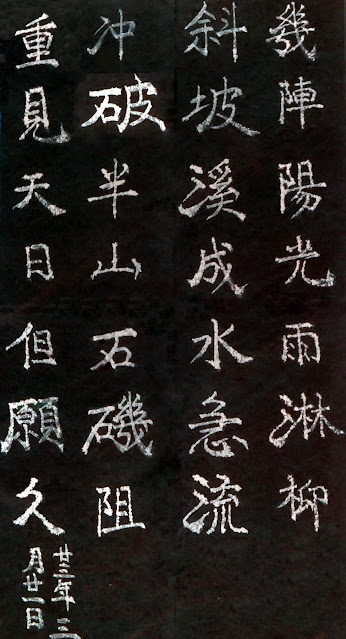 幾陣陽光雨淋柳
斜坡溪成水急流
冲破半山石磯阻
重見天日但願久
廿三年三
月廿一日